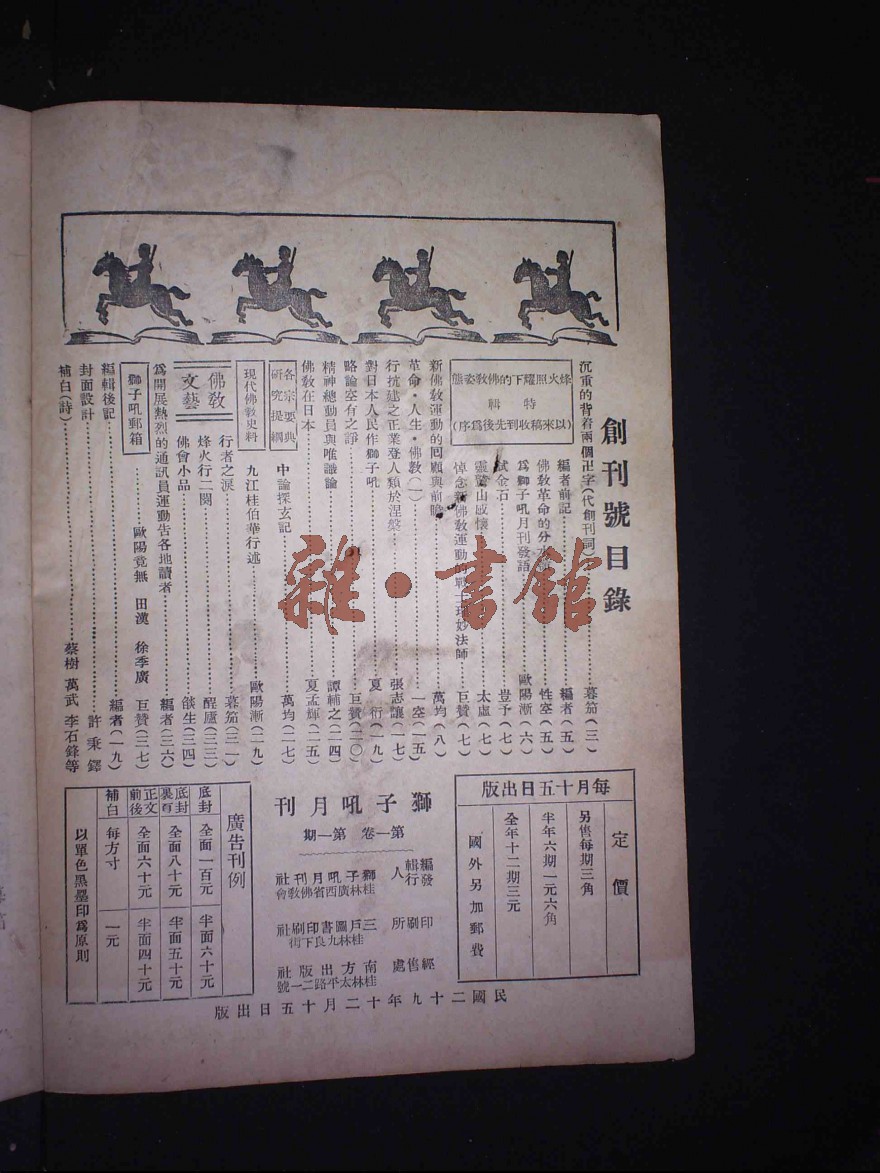 創刊號目錄
沉重的背着兩個卍字(代創刊詞)……暮笳(三)
烽火照耀下的佛教姿態
特輯
(以來稿收到先後爲序)
編者前記……編者(五)
佛教革命的分水……性空(五)
爲獅子吼月刊發語……歐陽漸(六)
試金石……豈予(七)
靈鷲山感懷……太虛(七)
悼念新佛教運動的戰士理妙法師……巨贊(七)
新佛教運動的回顧與前瞻……萬均(八)
革命·人生·佛教(一)……一空(一五)
行抗建之正業登人類於涅槃……張志讓(一七)
對日本人民作獅子吼……夏衍(一九)
略論空有之諍……巨贊(二〇)
精神總動員與唯識論……譚輔之(二四)
佛教在日本……夏孟輝(二五)
各宗要典
研究提綱
中論探玄記……萬均(二七)
現代佛教史料
九江桂伯華行述……歐陽漸(二九)
佛教
文藝
行者之淚……暮笳(三一)
烽火行二闋……醒廬(三三)
佛會小品……燄生(三四)
爲開展熱烈的通訊員運動告各地讀者……編者(三六)
獅子吼郵箱
歐陽竟無 田漢 徐季廣 巨贊(三七)
編輯後記……編者(一九)
封面設計……許秉鐸
補白(詩)……蔡樹 萬武 李石鋒等
每月十五日出版
定價
另售每期三角
半年六期一元六角
全年十二期三元
國外另加郵費
獅子吼月刊
第一卷 第一期
編輯發行人 獅子吼月刊社
桂林廣西省佛教會
印刷所 三戶圖書印刷社
桂林九良下街
經售處 南方出版社
桂林太平路二一號
廣告刊例
底封 全面一百元 半面六十元
底封裏頁 全面八十元 半面五十元
正文前後 全面六十元 半面四十元
補白 每方寸 一元
以單色黑墨印爲原則
民國二十九年十二月十五日出版
雜·書館